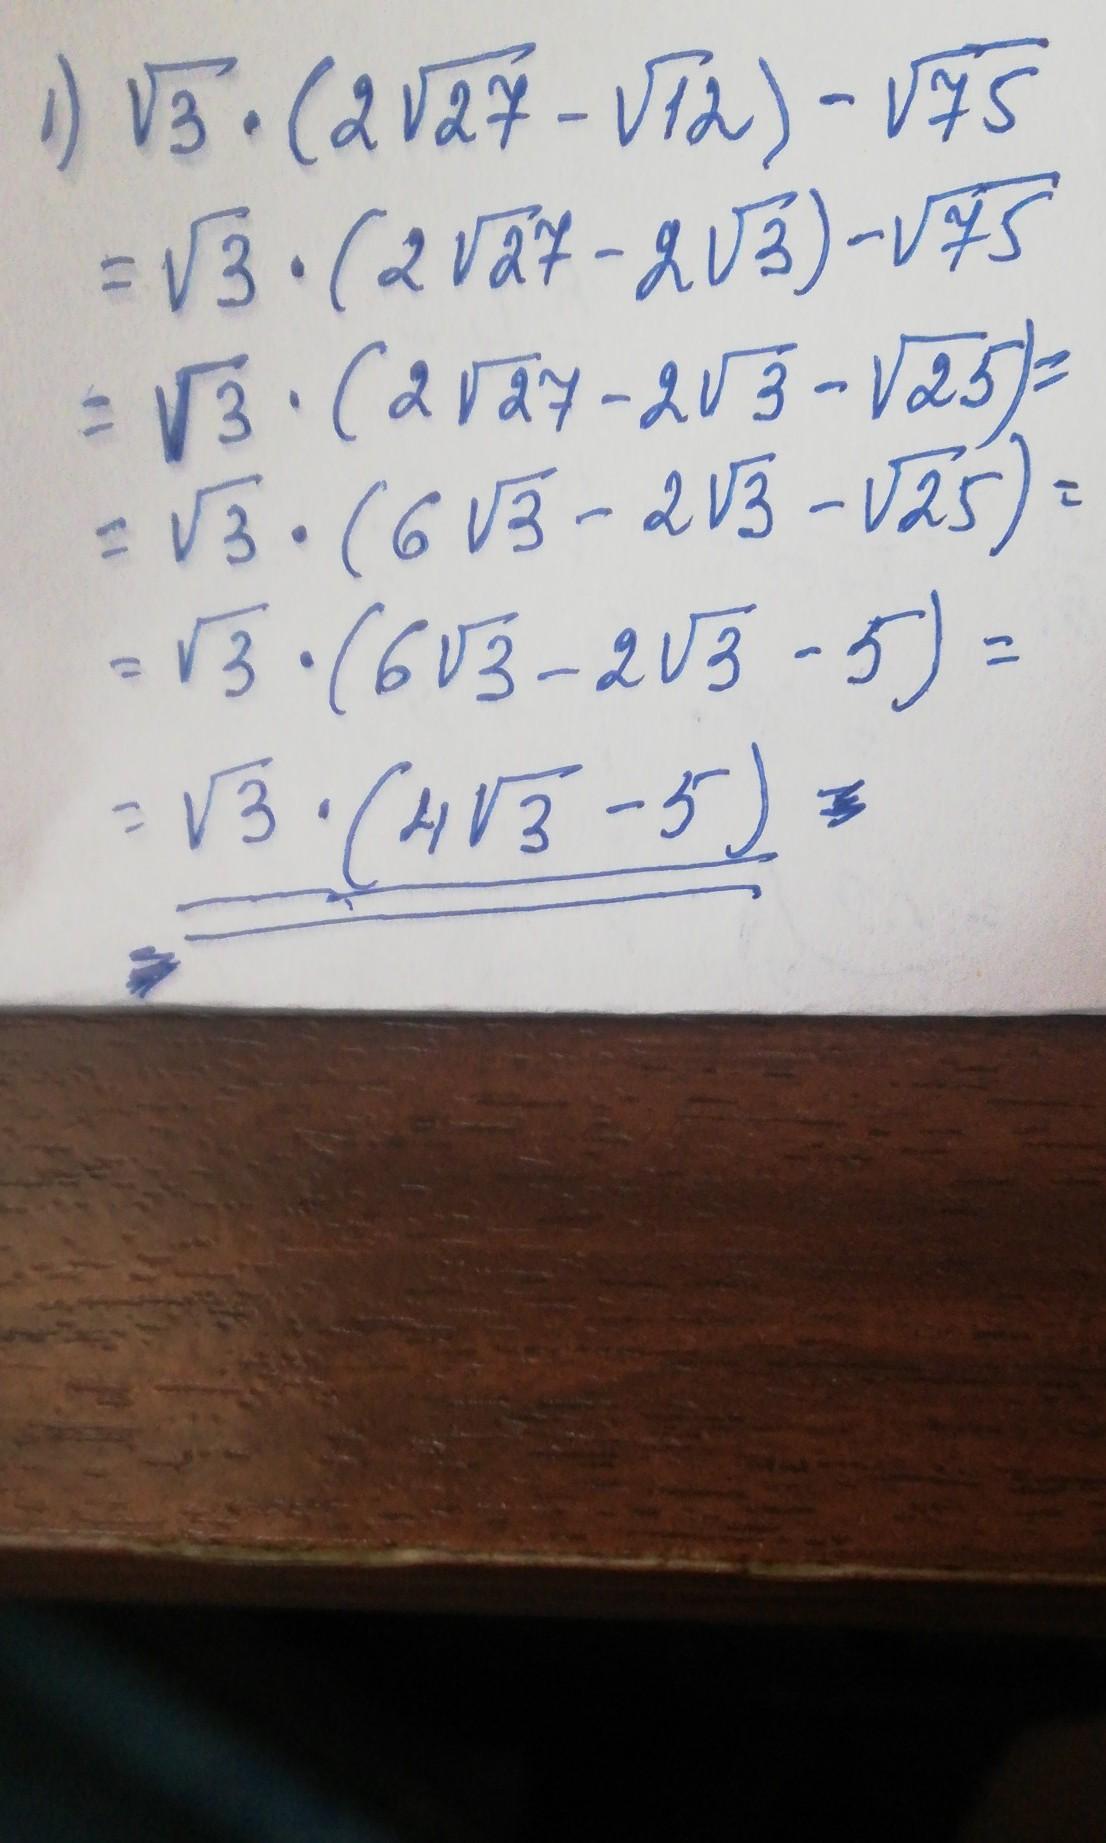 1) √3 · (2√27 - √12) - √75
= √3 · (2√27 - 2√3) - √75
= √3 · (2√27 - 2√3 - √25) =
= √3 · (6√3 - 2√3 - √25) =
= √3 · (6√3 - 2√3 - 5) =
= √3 · (4√3 - 5)